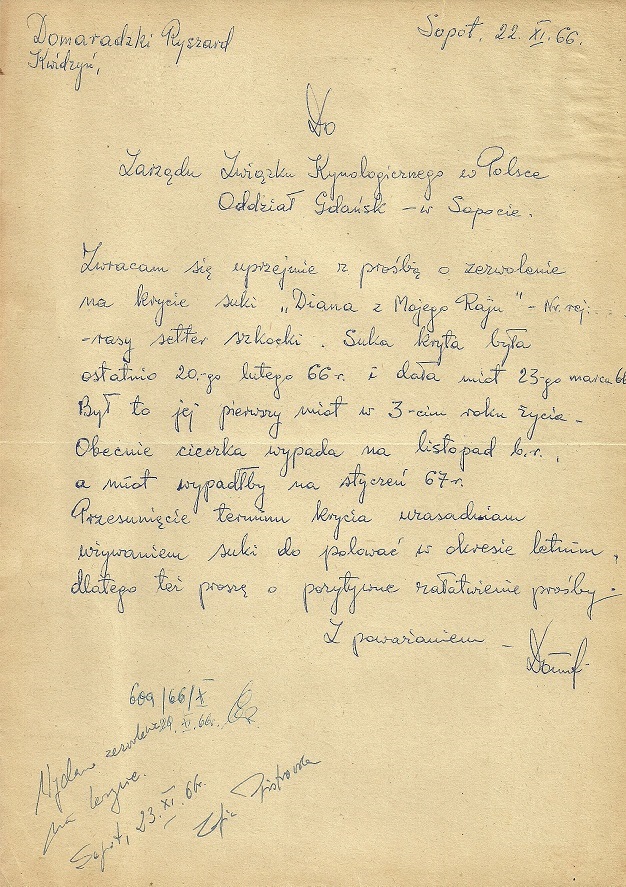 Domaradzki Ryszard
Kwidzyń,
Sopot. 22. XI. 66.
Do
Zarządu Związku Kynologicznego w Polsce
Oddział Gdańsk – w Sopocie.
Zwracam się uprzejmie z prośbą o zezwolenie
na krycie suki „Diana z Mojego Raju" – Nr. rej:
-rasy setter szkocki. Suka kryta była
ostatnio 20.-go lutego 66 r. i dała miot 23-go marca 66
Był to jej pierwszy miot w 3-cim roku życia –
Obecnie cieczka wypada na listopad b.r.,
a miot wypadłby na styczeń 67 r.
Przesunięcie terminu krycia uzasadniam
używaniem suki do polować w okresie letnim,
dlatego też proszę o pozytywne załatwienie prośby.
Z poważaniem –
609/66/X
Wydano zezwolenie XI. 66r.
na
Sopot, 23. XI. 66r.
Zofia